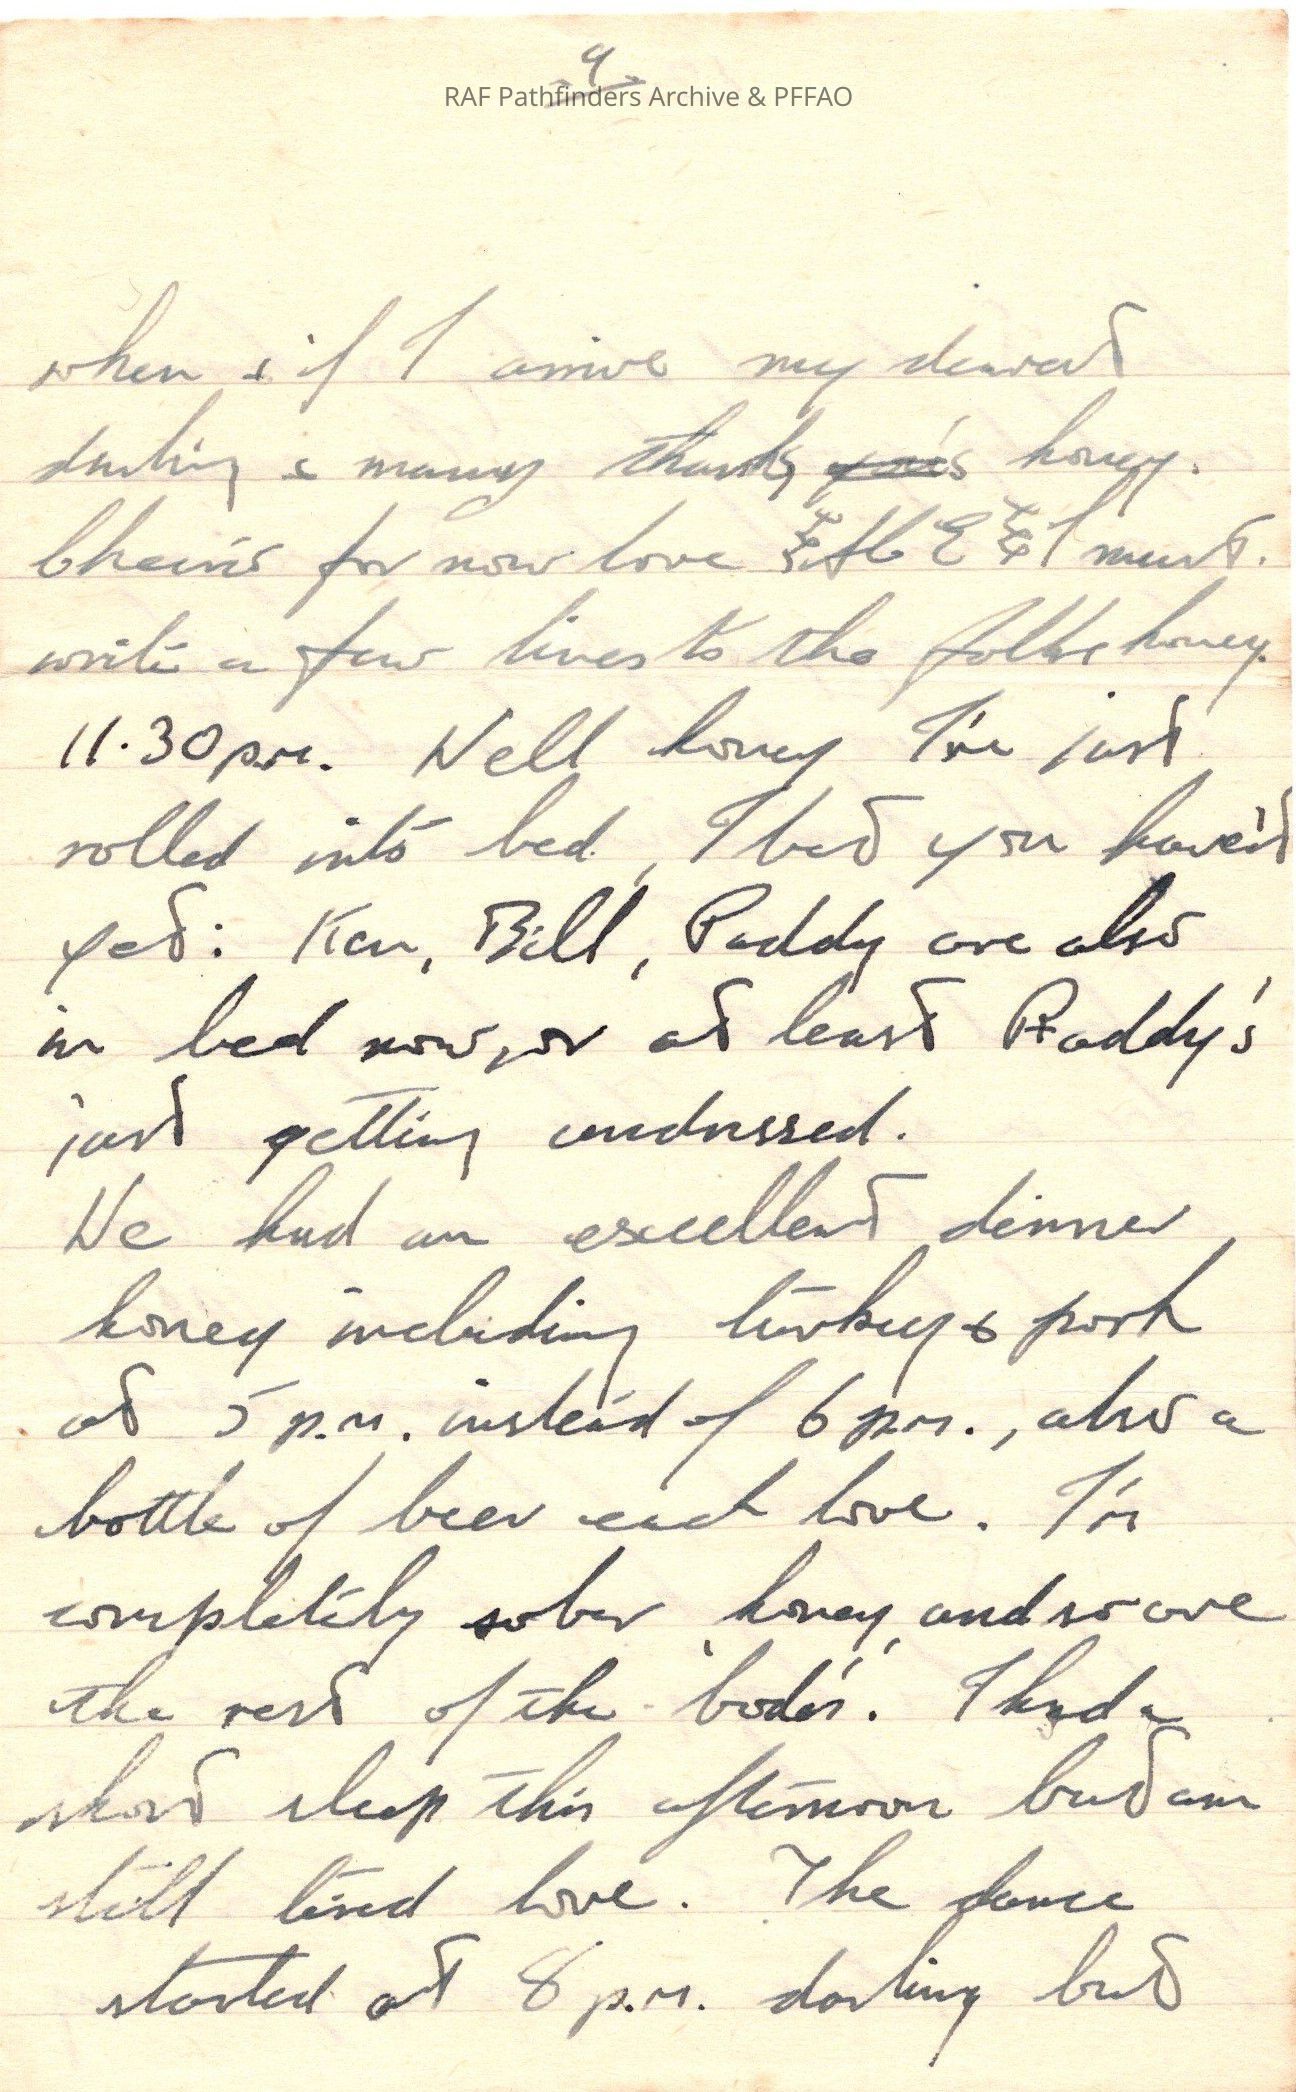 9
RAF Pathfinders Archive & PFFAO
when & if I arrive my dearest
darling & many thanks honey.
Cheerio for now love I must.
write a few lines to the folks honey.
11.30 p.m. Well honey I've just
rolled into bed, I bet you have'nt
yet: Ken, Bill, Paddy are also
in bed now, or at least Paddy's
just getting undressed.
We had an excellent dinner
honey including turkey & pork
at 5 p.m. instead of 6 p.m., also a
bottle of beer each love. I'm
completely sober honey, and so are
the rest of the 'bods'. I had a
short sleep this afternoon but am
still tired love. The dance
started at 8 p.m. darling but